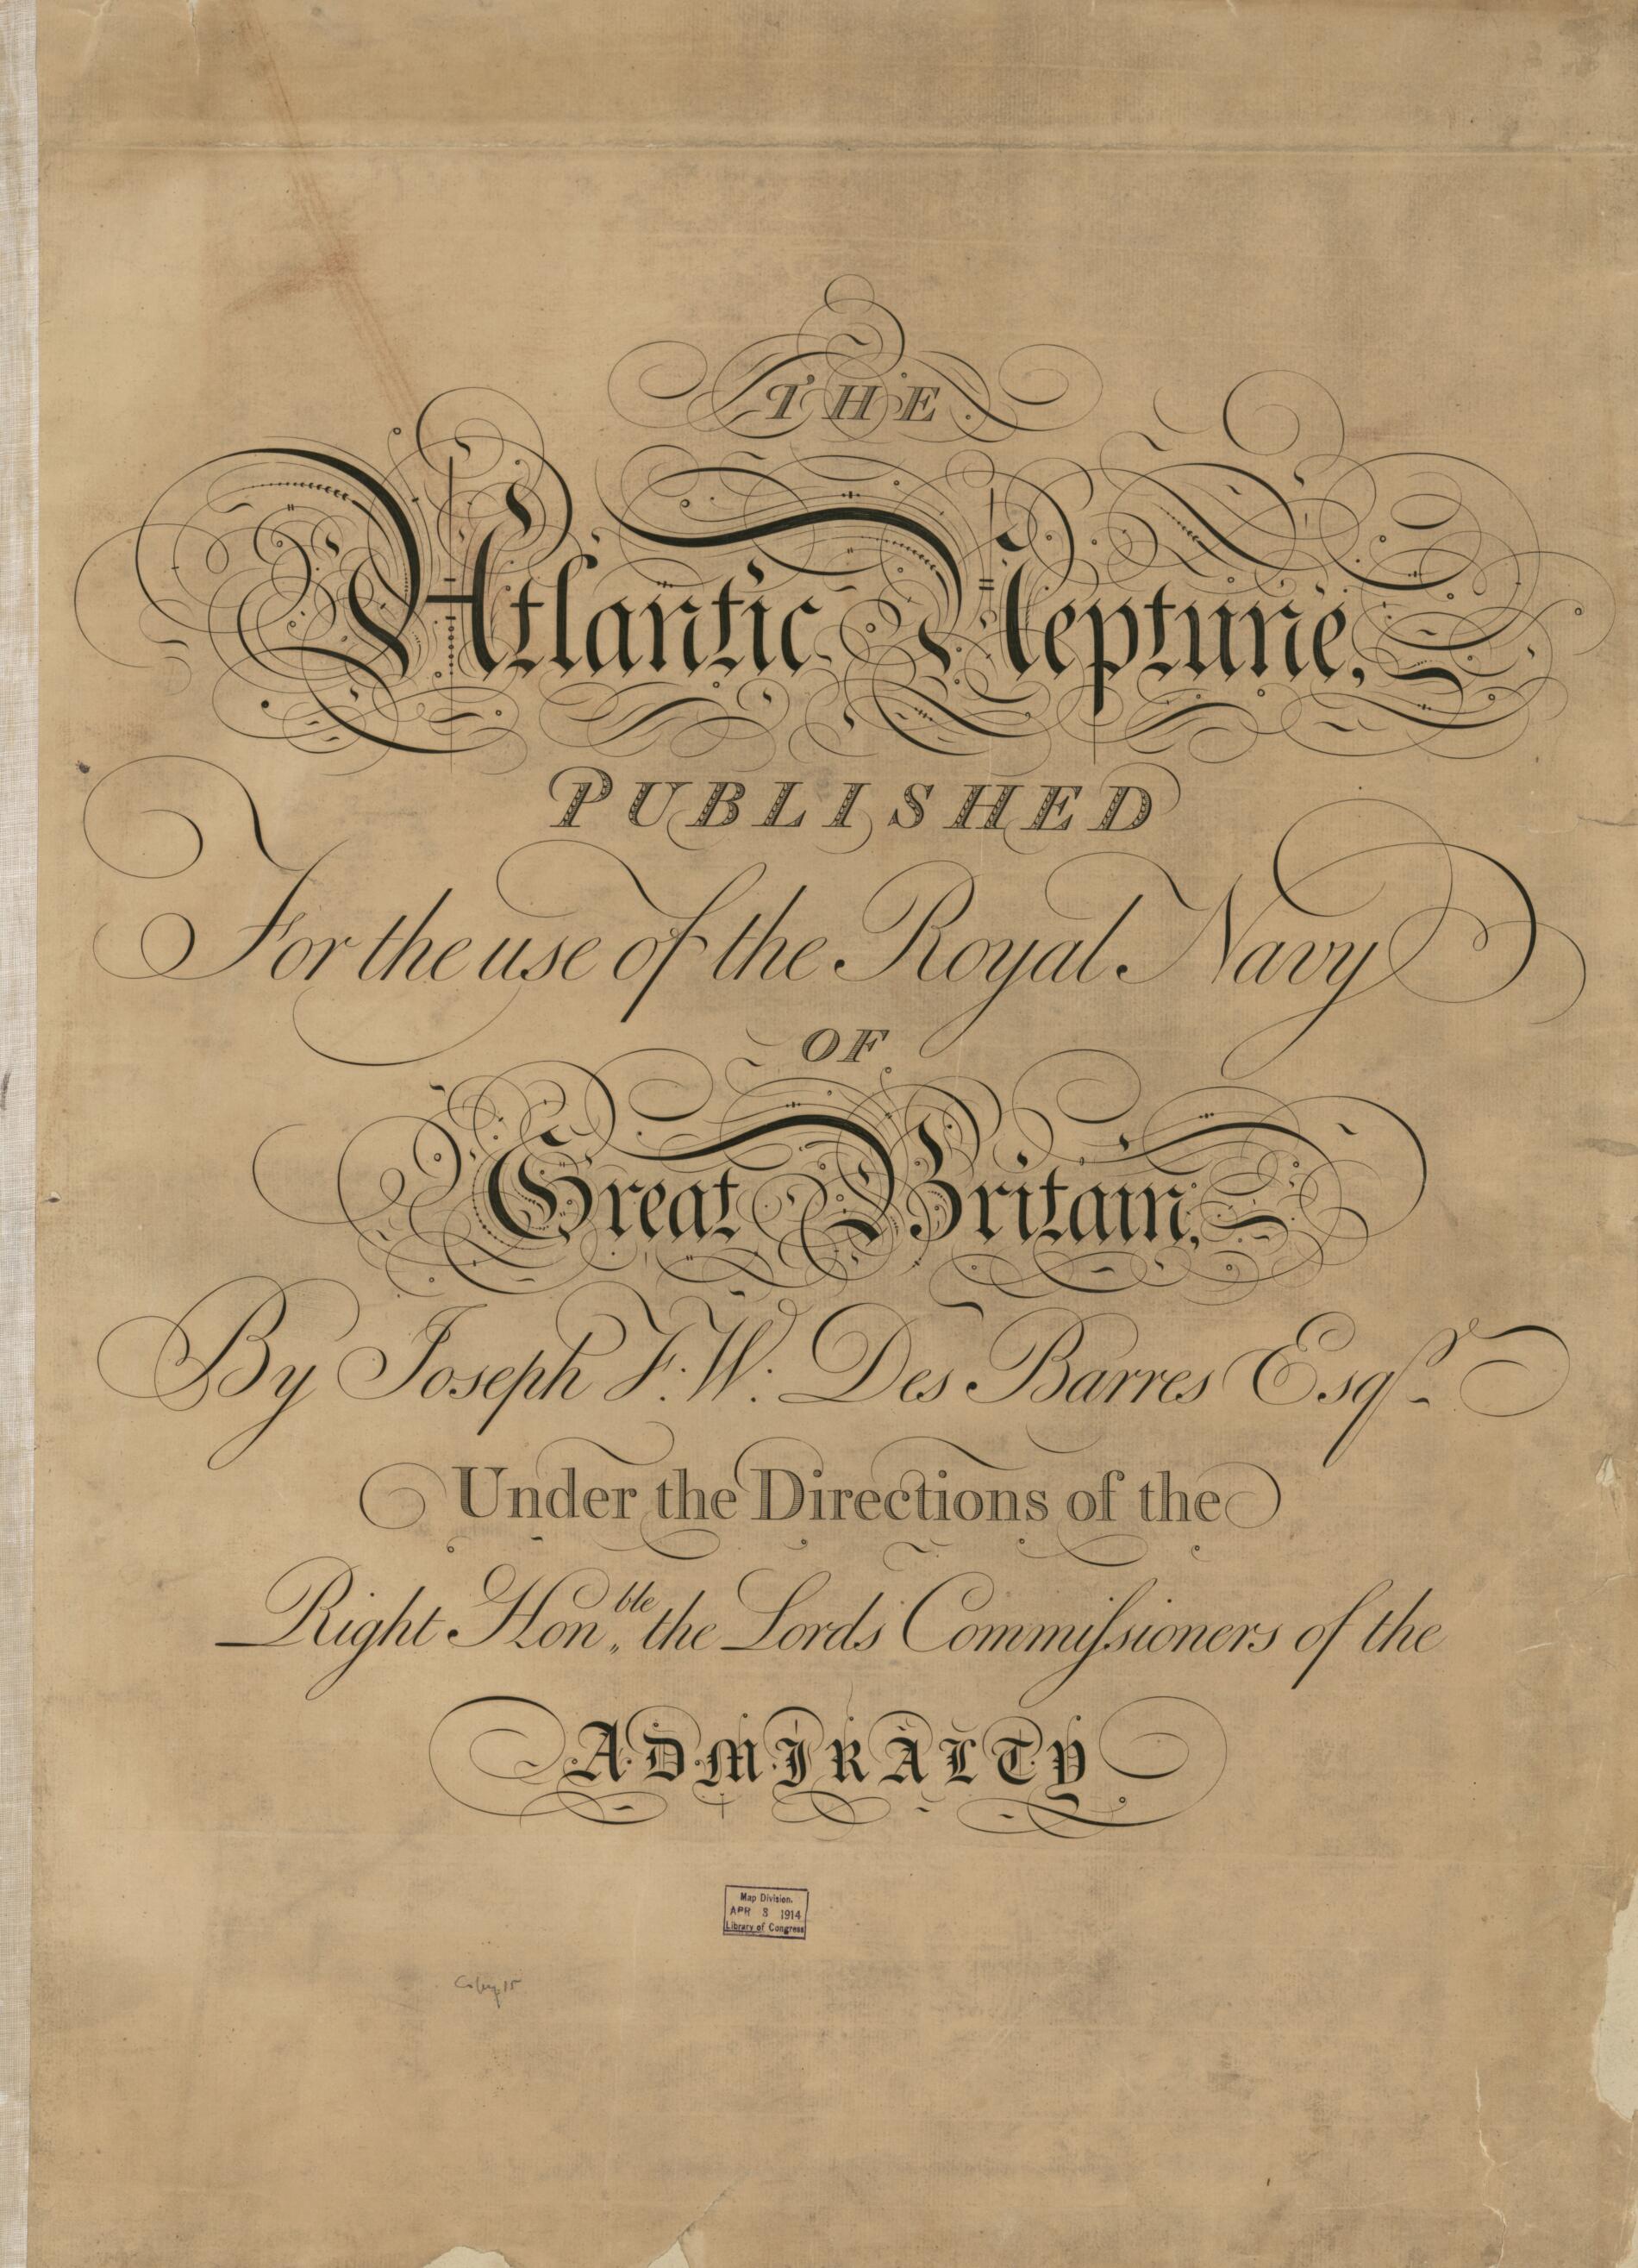 THE
Atlantic Neptune,
PUBLISHED
For the use of the Royal Navy
OF
Great Britain,
By Joseph F. W: Des Barres Esqr.
Under the Directions of the
Right Honble. the Lords Commiſsioners of the
ADMIRALTY
Map Division.
APR 3 1914
Library of Congress